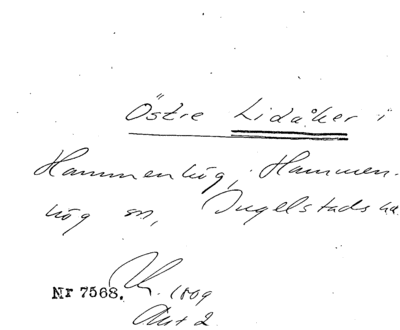 Östre Lidåker i
Hammenhög, Hammen-
hög sn, Ingelstads ha
Nr 7568. 1809
Akt 2